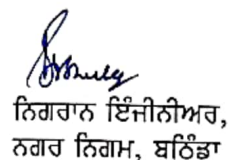 ਨਿਗਰਾਨ ਇੰਜੀਨੀਅਰ,
ਨਗਰ ਨਿਗਮ, ਬਠਿੰਡਾ